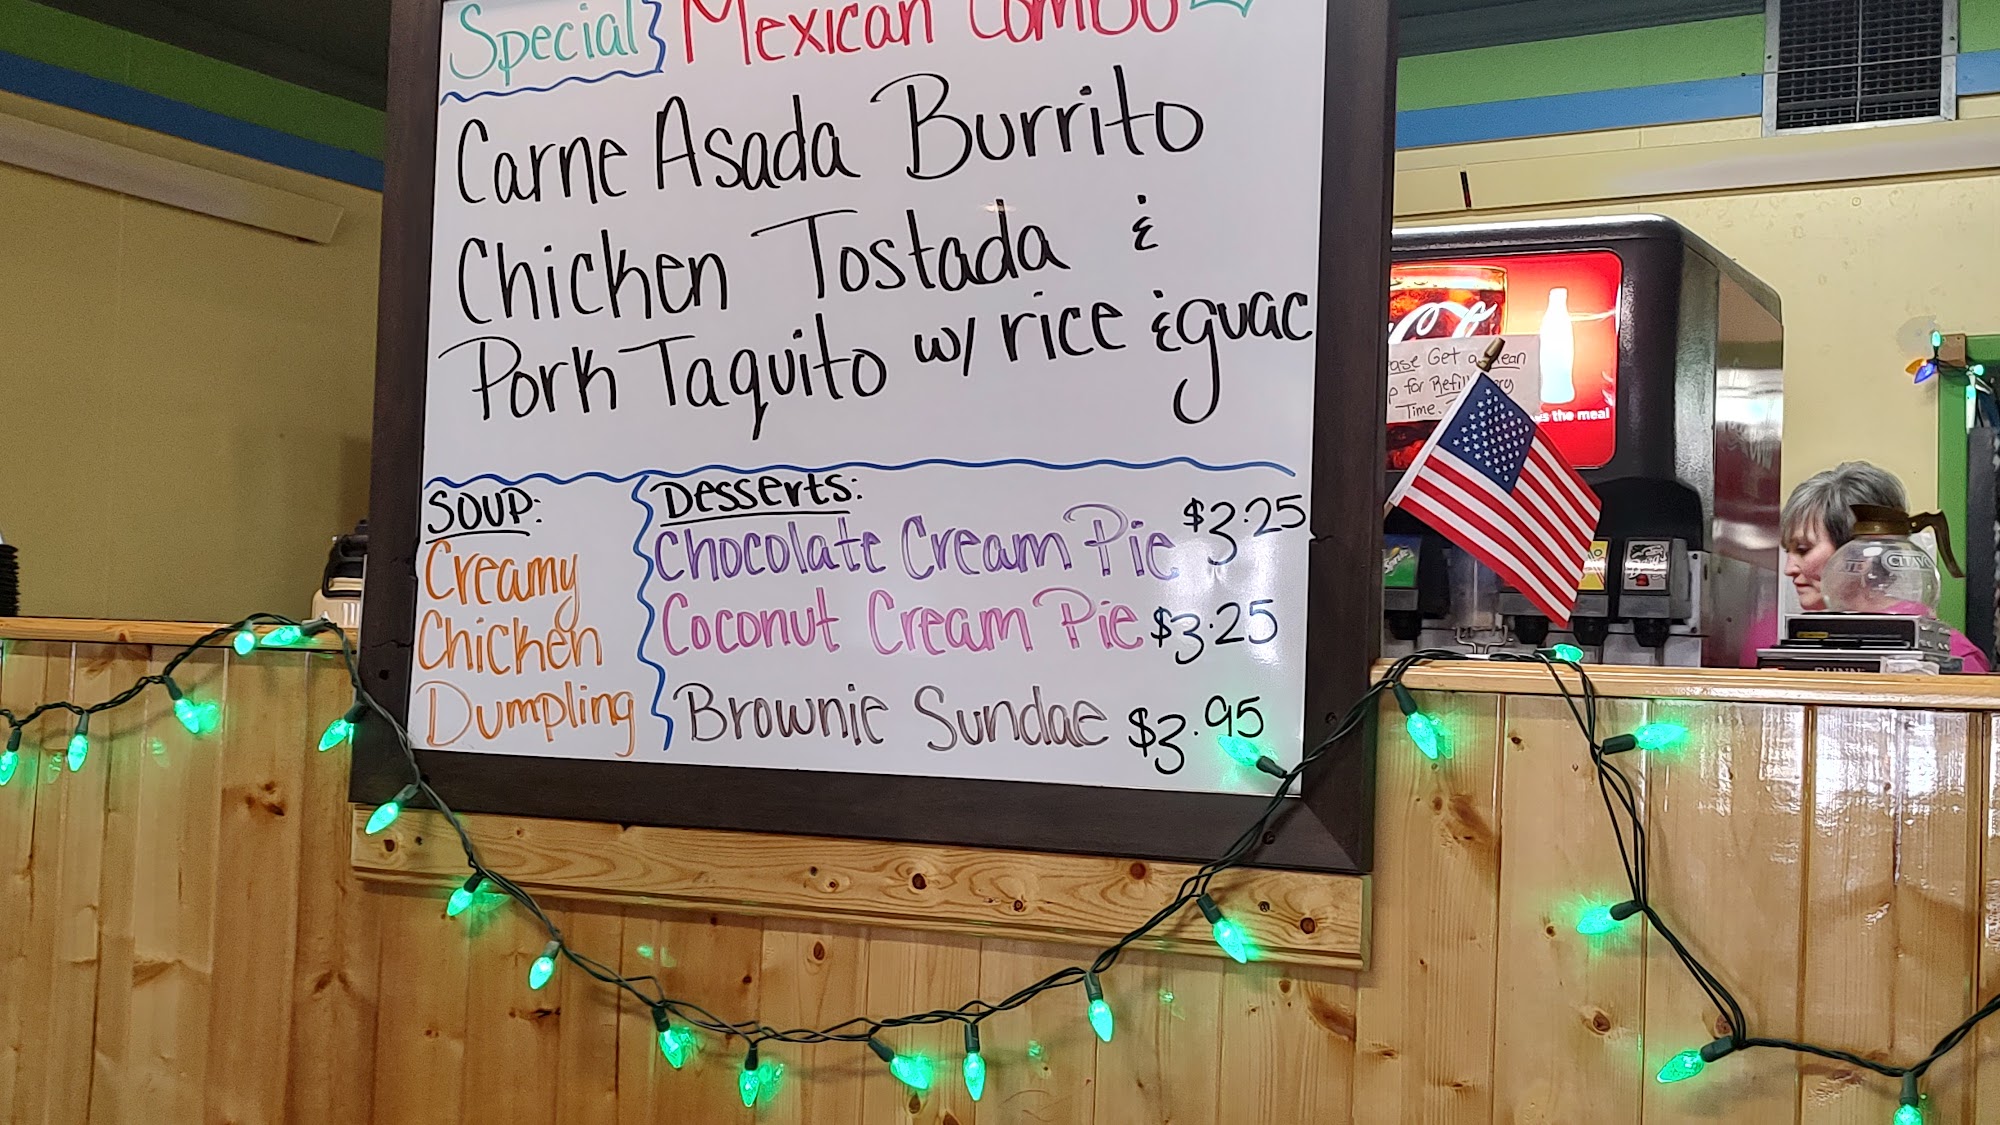 Special Mexican Combo
Carne Asada Burrito
Chicken Tostada &
Pork Taquito w/ rice & guac
Soup:
Creamy
Chicken
Dumpling
Desserts:
Chocolate Cream Pie $3.25
Coconut Cream Pie $3.25
Brownie Sundae $3.95
Get a
for Refill
Time.
the meal
Sprite
BUNN